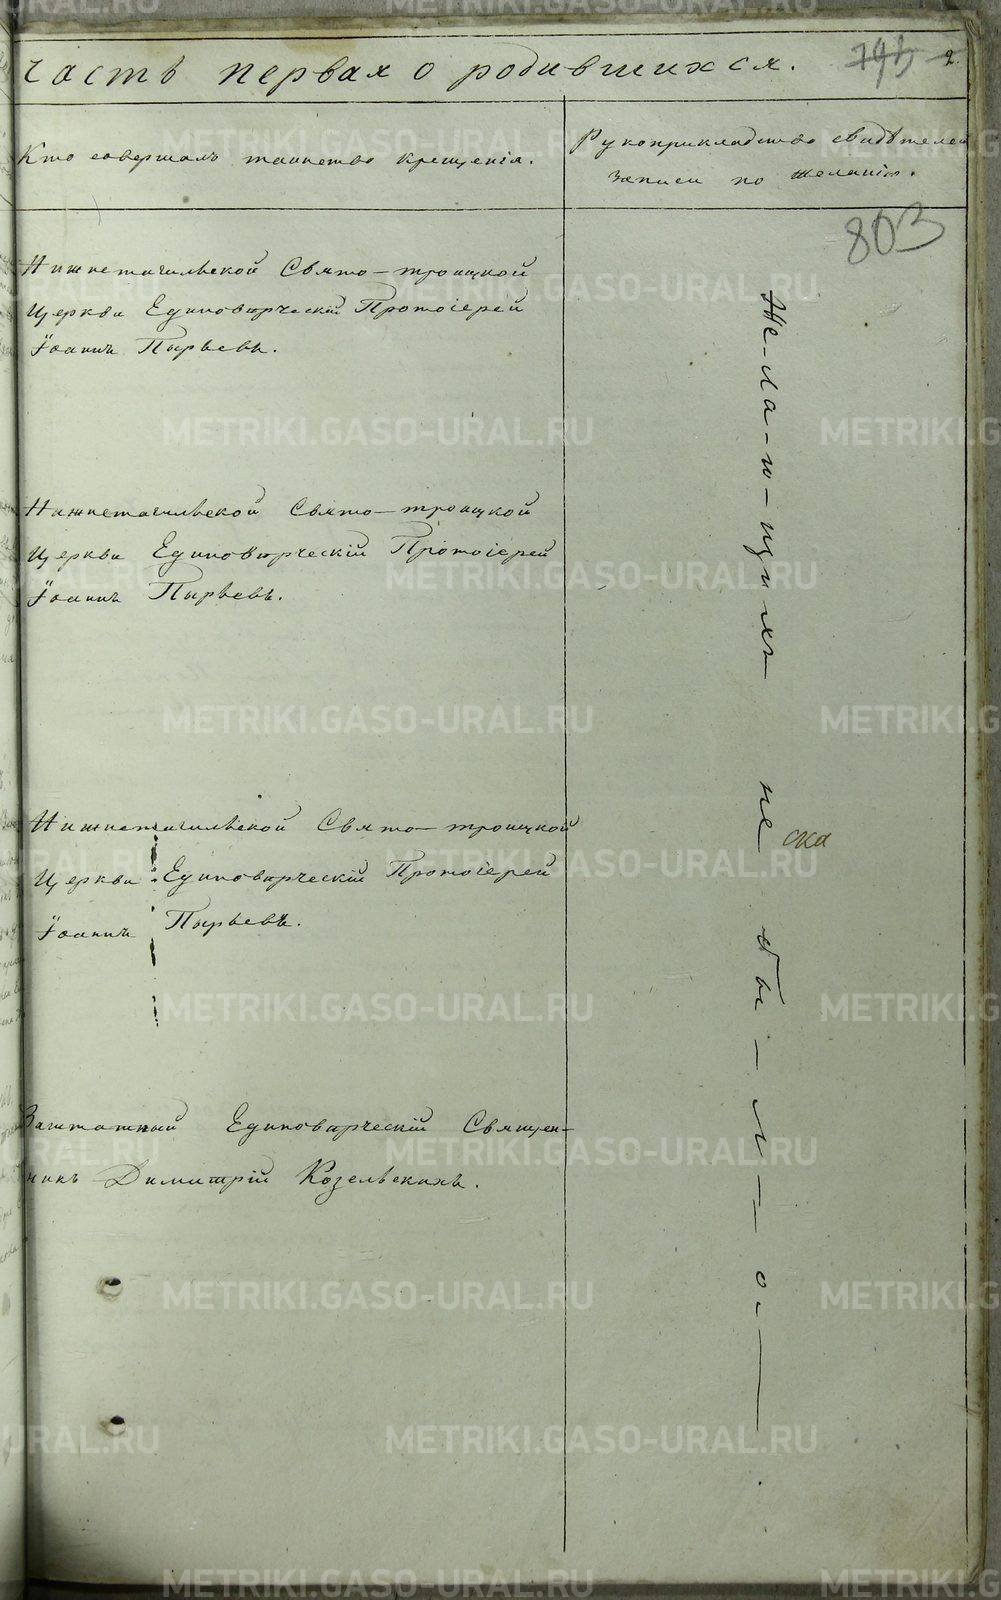 Часть первая о родившихся.
2.
Кто совершалъ таинство крещенія.
Рукоприкладство свидѣтелей
записи по желанію.
803
Нижнетагильской Свято-троицкой
Церкви Единовѣрческій Протоіерей
Іоаннъ Пырьевъ.
Нижнетагильской Свято-троицкой
Церкви Единовѣрческій Протоіерей
Іоаннъ Пырьевъ.
Нижнетагильской Свято-троицкой
Церкви Единовѣрческій Протоіерей
Іоаннъ Пырьевъ.
Заштатный Единовѣрческій Священ-
никъ Димитрій Козельскихъ.
Же-ла-ю-щихъ не бы-л-о.
METRIKI.GASO-URAL.RU